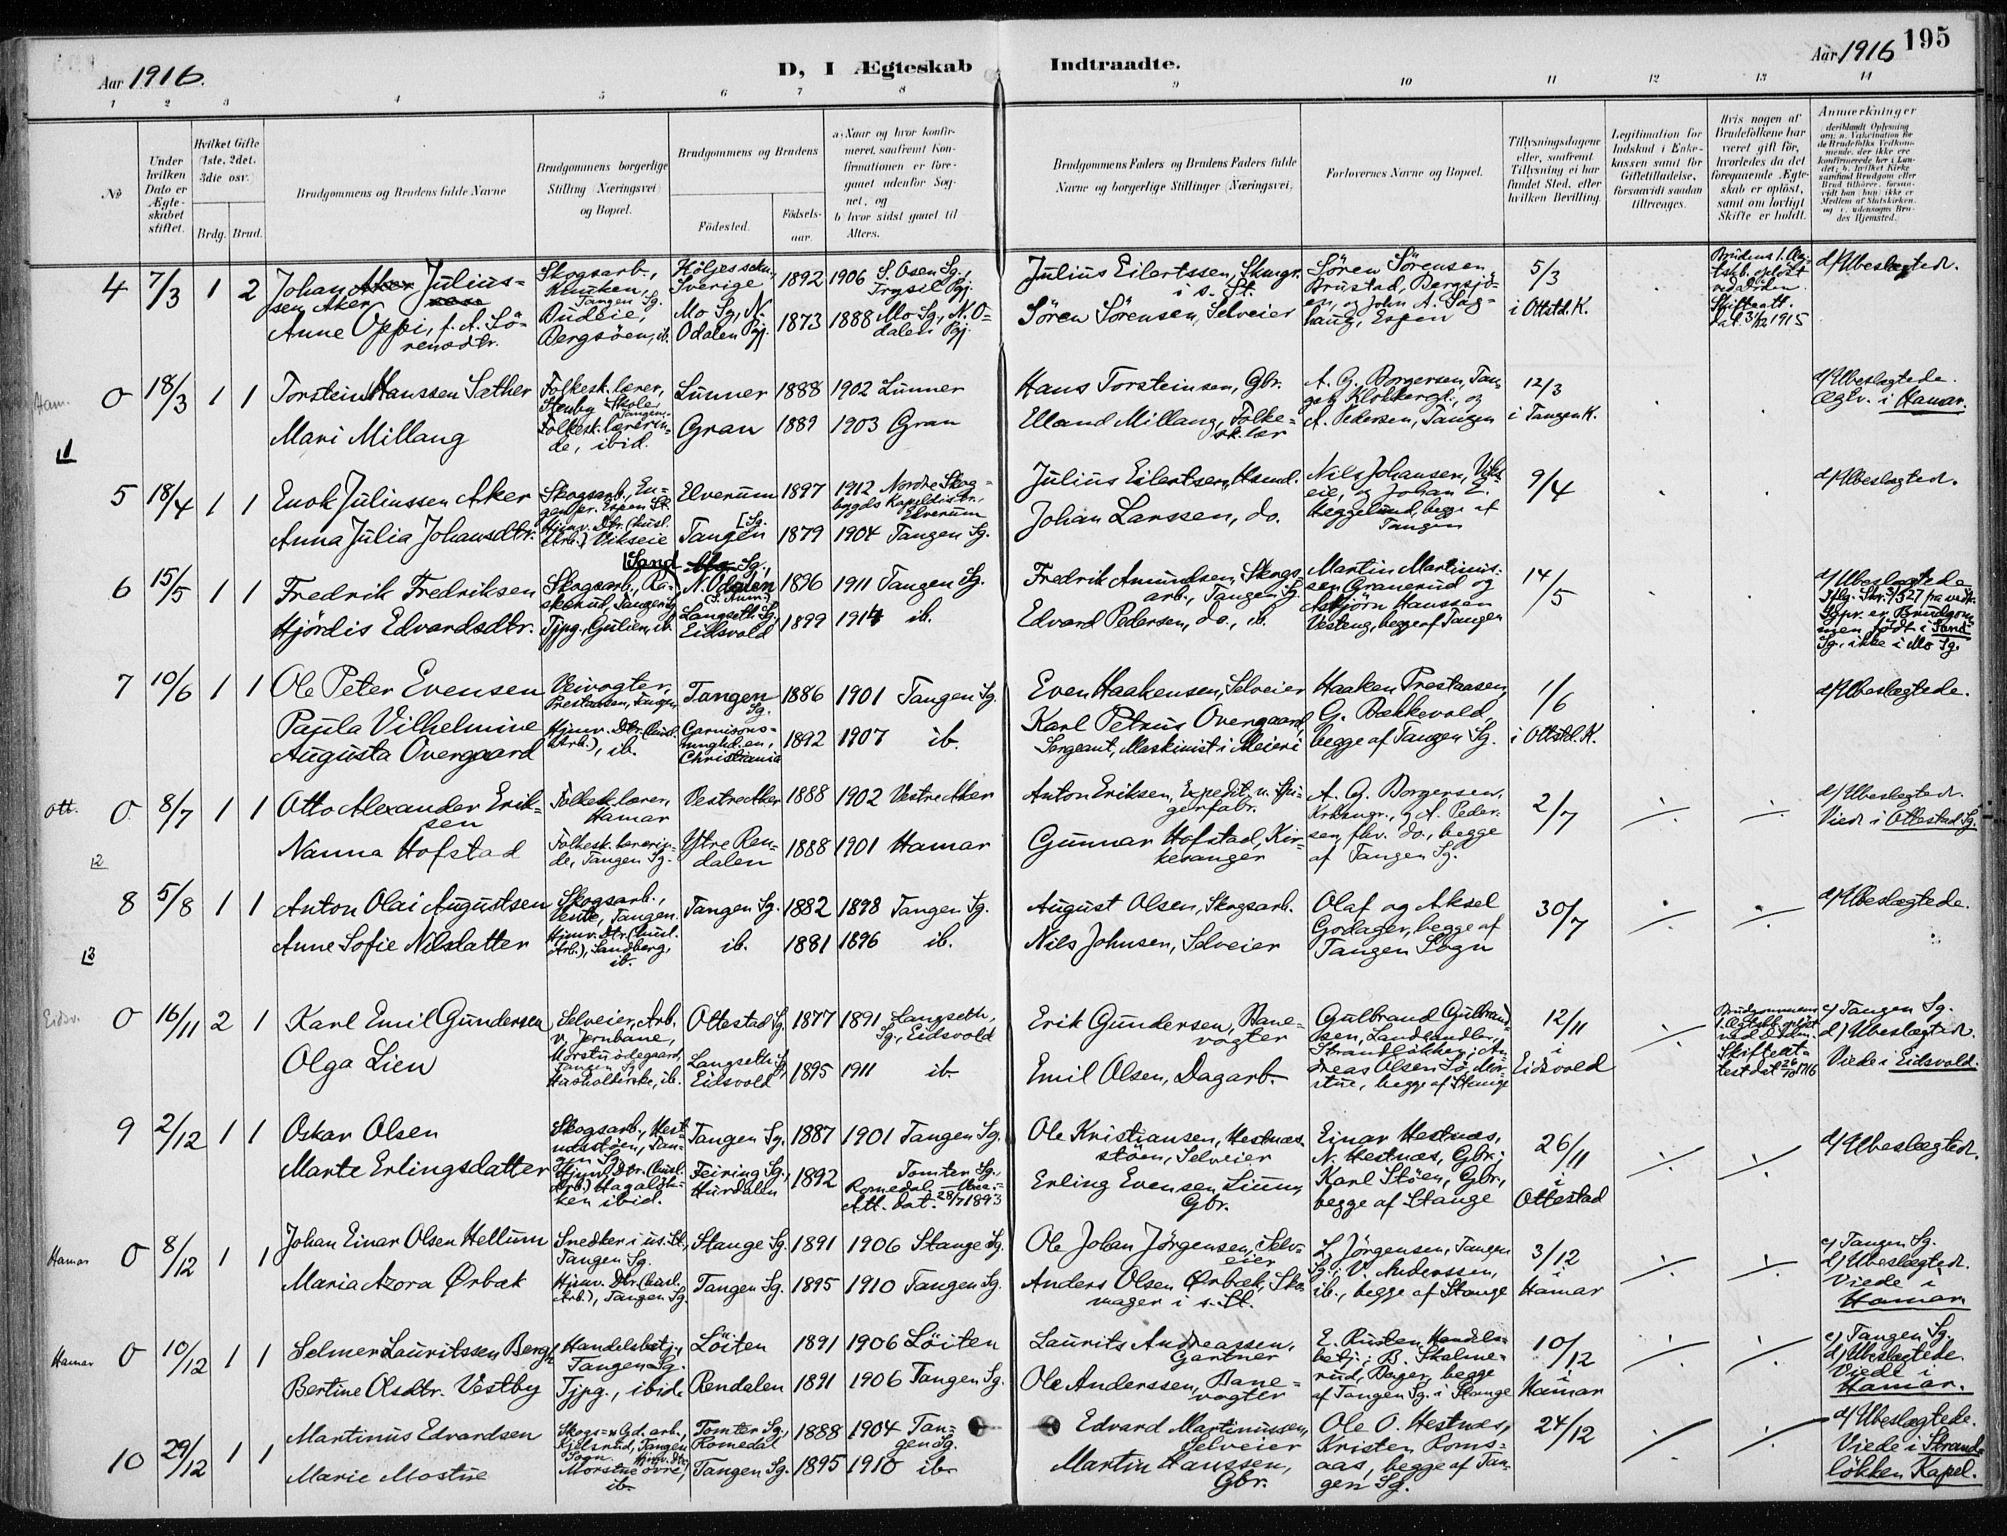 195
Aar 1916.
D, I Ægteskab Indtraadte.
Aar 1916
1 2 3 4 5 6 7 8 9 10 11 12 13 14
No
Under hvilken Dato er Ægteskabet stiftet.
Hvilket Gifte (1ste, 2det, 3die osv.)
Brdg. Brud.
Brudgommens og Brudens fulde Navne
Brudgommens borgerlige Stilling (Næringsvei) og Bopæl.
Brudgommens og Brudens
Fødested.
Fødselsaar.
a) Naar og hvor konfirmeret, saafremt Konfirmationen er foregaaet udenfor Sognet, og
b) hvor sidst gaaet til Alters.
Brudgommens Faders og Brudens Faders fulde Navne og borgerlige Stillinger (Næringsvei)
Forlovernes Navne og Bopæl.
Tillysningsdagene eller, saafremt Tillysning ei har fundet Sted, efter hvilken Bevilling.
Legitimation for Indskud i Enkekassen samt for Giftetilladelse, forsaavidt saadan tiltrænges.
Hvis nogen af Brudefolkene har været gift før, hvorledes da det foregaaende Ægteskab er opløst, samt om lovligt Skifte er holdt.
Anmærkninger
4 7/3 1 2 Johan Aker Juliussen Aker
Skogsarb., Knuken, Tangen Sg.
Höljes sokn, Sverige 1892 1906 S. Osen Sg., Trysil Pgj.
Julius Eilertssen, Skogv. i s. St.
Sören Sörensen Brustad, Bergsjöen, og John A. Saghaug, Espen
5/3 i Ottstd. K.
Brudens 1. Ægtskb. opløst ved Döden. Skifteatt. dat. 31/12 1915
d/ Ubeslægtede.
Anne Oppi, f. A. Sörensdtr.
Budeie, Bergsöen, ib.
Mo Sg., N. Odalen Pgj. 1873 1888 Mo Sg., N. Odalen Pgj.
Sören Sörensen, Selveier
Ham. 0 18/3 1 1 Torstein Hanssen Sæther
Folkesk. lærer, Stenby Skole, Tangen.
Lunner 1888 1902 Lunner
Hans Torsteinsen, Gbr.
A. G. Borgersen, Tangen Klokkergd., og A. Pedersen, Tangen
12/3 i Tangen K.
d/ Ubeslægtede. Ægtv. i Hamar.
Mari Millang
Folkesk. lærerinde, ibid.
Gran 1889 1903 Gran
Elland Millang, Folkesk. lær
5 18/4 1 1 Enok Juliussen Aker
Elverum 1897 1912 Nordre Skogbygds Kapeldistr., Elverum
Julius Eilertsen, Hmd.
Nils Johansen, Vikseie, og Johan L. Heggelund, begge af Tangen
9/4
d/ Ubeslægtede.
Anna Julia Johansdtr.
Hjmv. Dtr. (husl. Arb.) Vikseie
Tangen Sg. 1879 1904 Tangen Sg.
Johan Larssen, do.
6 15/5 1 1 Fredrik Fredriksen
Sand Sg., N. Odalen (S. Anm.) 1896 1911 Tangen Sg.
Fredrik Amundsen, Skogsarb., Tangen Sg.
Martin Martinissen Granerud og Asbjörn Hanssen Vesteng, begge af Tangen
14/5
d/ Ubeslægtede
födt i Sand Sg., ikke i Mo Sg.
Hjördis Edvardsdtr.
Tjpg., Gulien, ib.
Langseth Sg. Eidsvold 1899 1914 ib.
Edvard Pedersen, do., ib.
7 10/6 1 1 Ole Peter Evensen
Veivogter, Prestaasen, Tangen
Tangen Sg. 1886 1901 Tangen Sg.
Even Haakensen, Selveier
Haaken Prestaasen, G. Bækkevold, begge af Tangen Sg.
1/6 i Ottstd. K.
d/ Ubeslægtede.
Paula Vilhelmine Augusta Overgaard
Hjmv. Dtr. (husl. Arb.), ib.
Garnisonsmenighd.en, Christiania 1892 1907 ib.
Karl Petrus Overgaard, Sergeant, Maskinist i Meieri
Ott. 0 8/7 1 1 Otto Alexander Eriksen
Folkesk. lærer, Hamar
Vestre Aker 1888 1902 Vestre Aker
Anton Eriksen, Expedit. v. Spigerfabr.
A. G. Borgersen, Krksngr., og A. Pedersen, fhv. do., begge af Tangen Sg.
2/7
d/ Ubeslægtede. Viede i Ottestad Sg.
Nanna Hofstad
Folkesk. lærerinde, Tangen Sg.
Ytre Rendalen 1888 1901 Hamar
Gunnar Hofstad, Kirkesanger
8 5/8 1 1 Anton Olai Augustsen
Skogsarb., Vente, Tangen.
Tangen Sg. 1882 1898 Tangen Sg.
August Olsen, Skogsarb.
Olaf og Aksel Godager, begge af Tangen Sogn
30/7
d/ Ubeslægtede.
Anne Sofie Nilsdatter
Hjmv. Dtr. (husl. Arb.), Sandberg, ib.
ib. 1881 1896 ib.
Nils Johnsen, Selveier
Eidsv. 0 16/11 2 1 Karl Emil Gundersen
Selveier, Arb. v. Jernbane, Morstu ödegaard, Tangen Sg.
Ottestad Sg. 1877 1891 Langseth Sg., Eidsvold
Erik Gundersen, Banevogter
Gulbrand Gulbrandsen, Landhandler, Strandlökken, Andreas Olsen Sö. Morstue, begge af Stange
12/11 i Eidsvold
Brudgommens 1. Ægtskb. opløst ved Döden. Skifteattest dat. 26/10 1916
c) Tangen Sg. d) Ubeslægtede. Viede i Eidsvold.
Olga Lien
Husholderske, ib.
Langseth Sg. Eidsvold 1895 1911 ib.
Emil Olsen, Dagarb.
9 2/12 1 1 Oskar Olsen
Skogsarb., Hestnæsstöen, Tangen Sg.
Tangen Sg. 1887 1901 Tangen Sg.
Ole Kristiansen, Hestnæsstöen, Selveier
Einar Hestnæs, N. Hestnæs, Gbr.; Karl Stöen, Gbr., begge af Stange
26/11 i Ottestad
d/ Ubeslægtede.
Marte Erlingsdatter
Hjmv. Dtr. (husl. Arb.) Hagalökken ibid.
Feiring Sg., Hurdalen 1892 Tomter Sg., Romedal
Att. dat. 28/7 1893
Erling Evensen Liung, Gbr.
Hamar 0 8/12 1 1 Johan Einar Olsen Hellum
Snedker i us. St., Tangen Sg.
Stange Sg. 1891 1906 Stange Sg.
Ole Johan Jörgensen, Selveier
L. Jörgensen, Tangen Sg.; V. Anderssen, ib., begge af Stange
3/12 i Hamar
c) Tangen Sg. d) Ubeslægtede. Viede i Hamar
Maria Azora Ørbæk
Hjmv. Dtr. (husl. Arb.), Tangen Sg.
Tangen Sg. 1895 1910 Tangen Sg.
Anders Olsen Ørbæk, Skomager i s. St.
Hamar 0 10/12 1 1 Selmer Lauritssen Bergh
Handelsbetj., Tangen Sg.
Löiten 1891 1906 Löiten
Laurits Andreassen, Gartner
E. Rusten, Handelsbetj.; B. Skalmerud, Bager, begge af Tangen Sg. i Stange
10/12 i Hamar
c) Tangen Sg. d) Ubeslægtede. Viede i Hamar.
Bertine Olsdtr. Vestby
Tjpg., ibid.
Rendalen 1891 1906 Tangen Sg.
Ole Anderssen, Banevogter
10 29/12 1 1 Martinus Edvardsen
Skogs- & Gd. arb., Kjelsrud, Tangen Sogn
Tomter Sg., Romedal 1888 1904 Tangen Sg.
Edvard Martinussen, Selveier
Ole O. Hestnæs, Kristen Romsaas, begge af Tangen Sg.
24/12
d/ Ubeslægtede. Viede i Strandlökken Kapel.
Marie Mostue
Hjmv. Dtr. Morstue övre, ib.
Tangen Sg. 1895 1910 ib.
Martin Hanssen, Gbr.